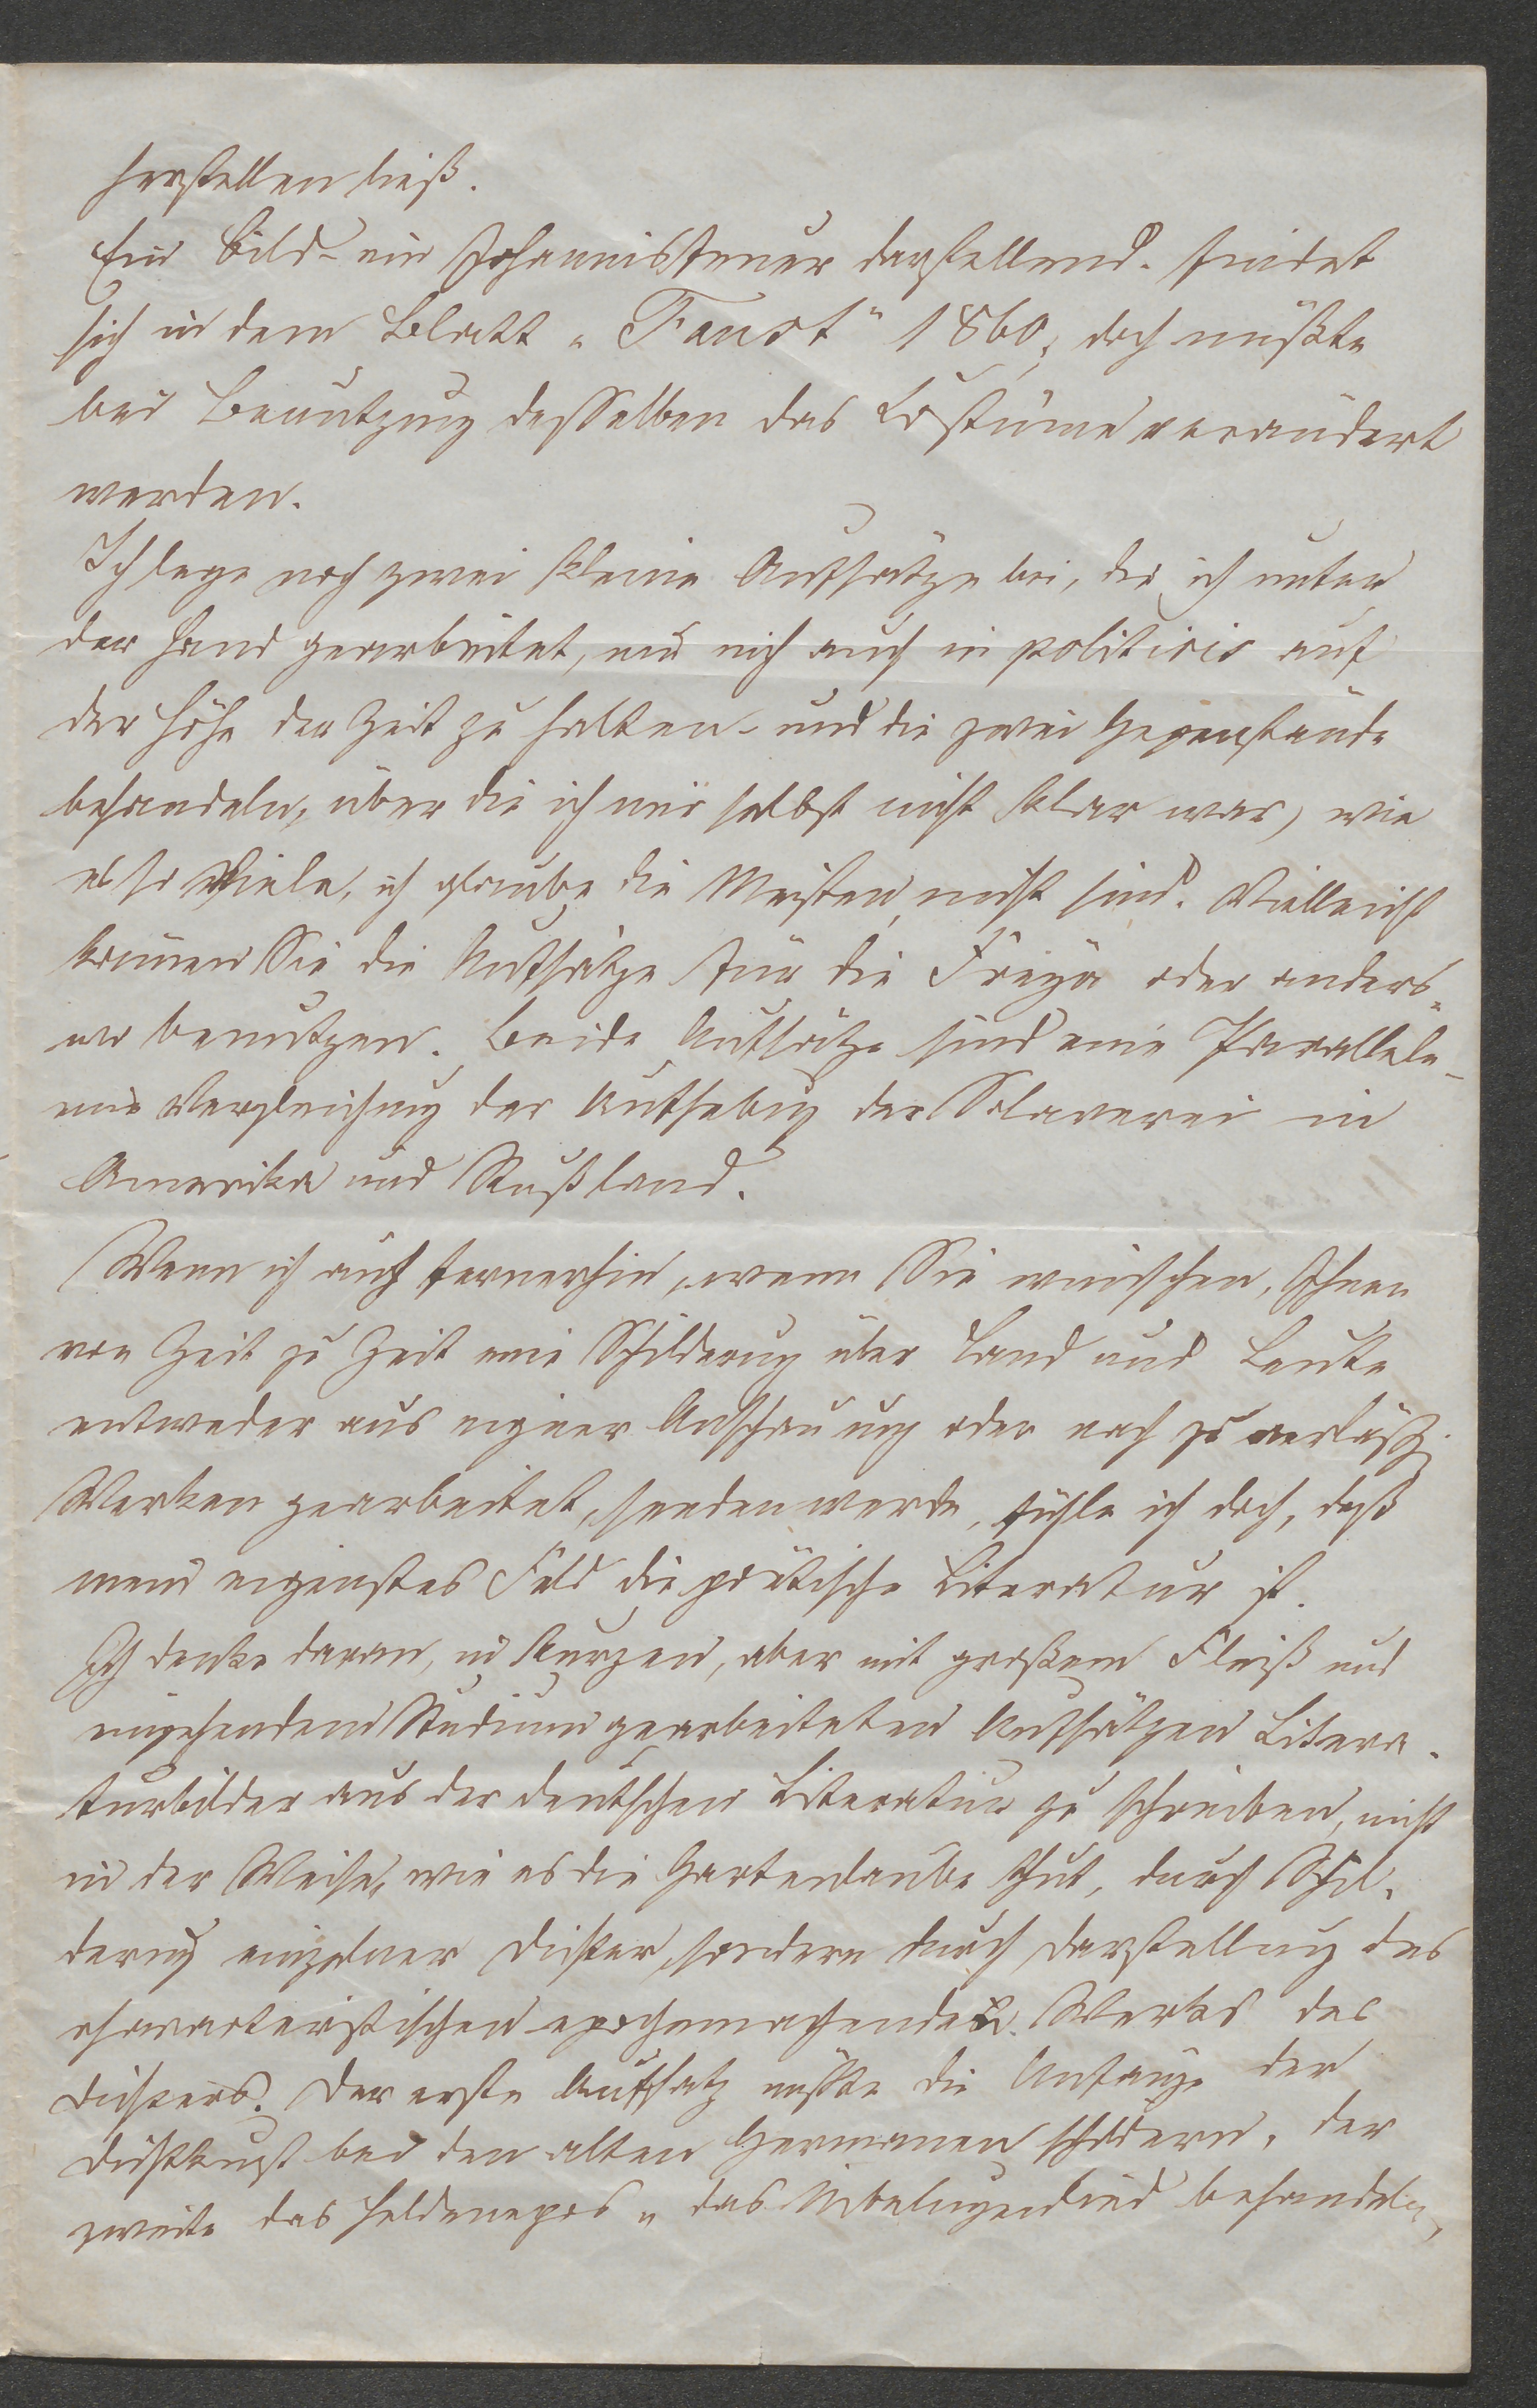 herstellen ließ.
Ein Bild - ein Johannisfeuer darstellend - findet
sich in dem Blatt „Faust" 1860, doch müßte
bei Benutzung desselben das Costüme verändert
werden.
Ich lege noch zwei kleine Aufsätze bei, die ich unter
der Hand gearbeitet, um mich auch in politicis auf
der Höhe der Zeit zu halten - und die zwei Gegenstände
behandeln, über die ich mir selbst nicht klar war, wie
es so Viele, ich glaube die Meisten, nicht sind. Vielleicht
können Sie die Aufsätze für die Freya oder anders-
wo benutzen. Beide Aufsätze sind eine Parallele -
eine Vergleichung der Aufhebung der Sclaverei in
Amerika und Rußland.
Wenn ich auch fernerhin, wenn Sie wünschen, Ihnen
von Zeit zu Zeit eine Schilderung über Land und Leute
entweder aus eigner Anschauung oder nach zuverläßig.
Werken gearbeitet, senden werde, fühle ich doch, daß
mein eigenstes Feld die poetische Literatur ist.
Ich denke daran, in kurzen, aber mit großem Fleiß und
eingehendem Studium gearbeiteten Aufsätzen Litera-
turbilder aus der deutschen Literatur zu schreiben, nicht
in der Weise, wie es die Gartenlaube thut, durch Schil-
derung einzelner Dichter, sondern durch Darstellung des
charakteristischen epochemachenden Werks des
Dichters. Der erste Aufsatz müßte die Anfänge der
Dichtkunst bei den alten Germanen schildern, der
zweite das Heldenepos „das Nibelungenlied behandeln,